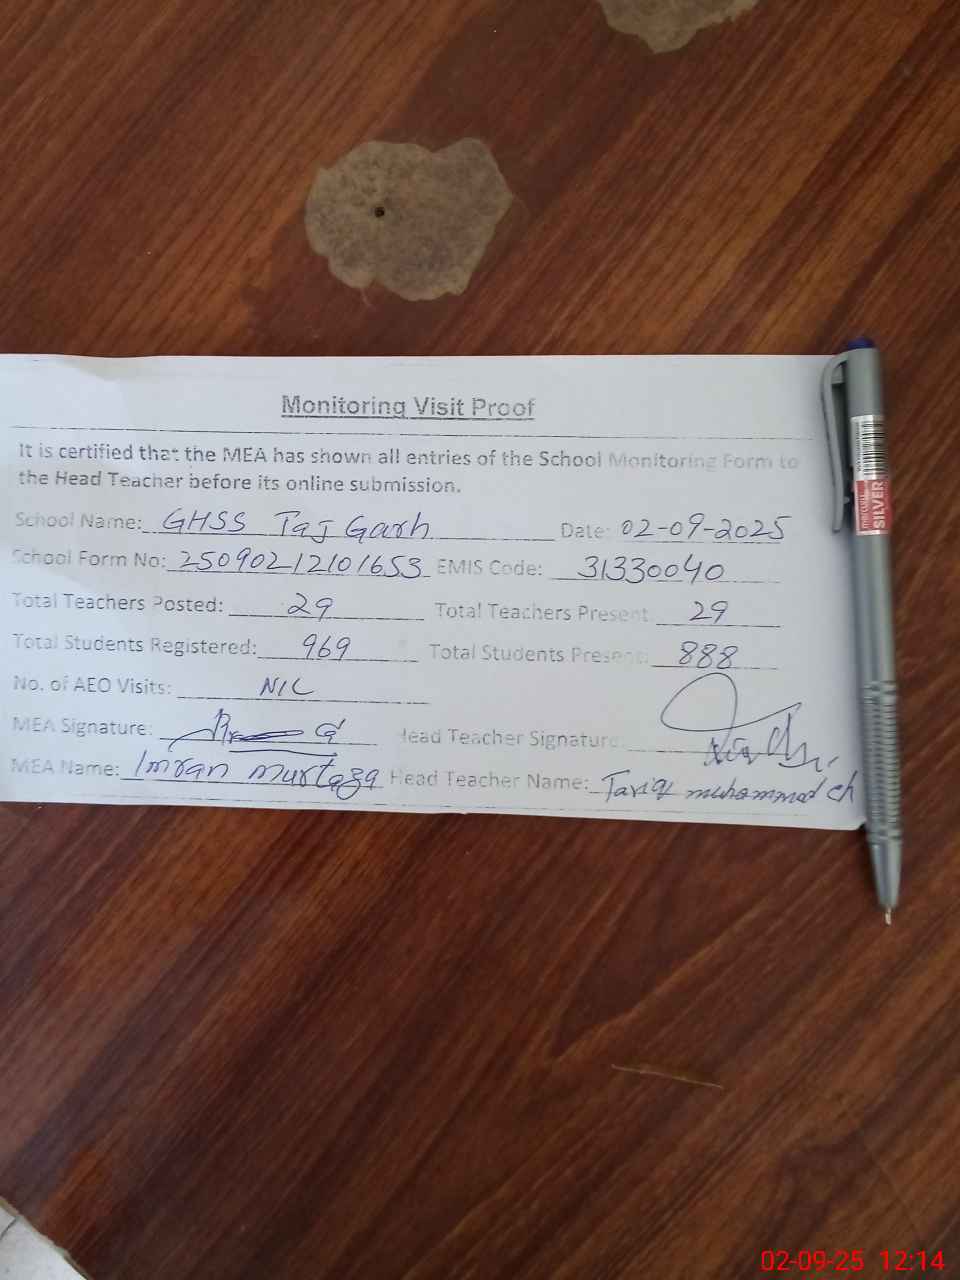 Monitoring Visit Proof
It is certified that the MEA has shown all entries of the School Monitoring Form to
the Head Teacher before its online submission.
School Name: GHSS Taj Garh Date: 02-09-2025
School Form No: 25090212101653 EMIS Code: 31330040
Total Teachers Posted: 29 Total Teachers Present: 29
Total Students Registered: 969 Total Students Present: 888
No. of AEO Visits: NIL
MEA Signature: Head Teacher Signature:
MEA Name: Imran murtaza Head Teacher Name: Tariq muhammad ch
SILVER
02-09-25 12:14